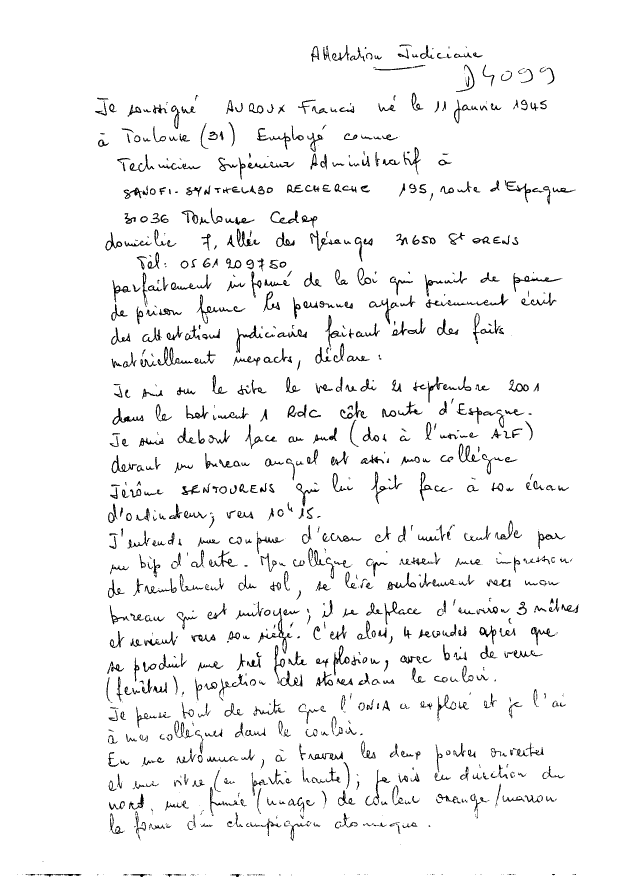 Attestation Judiciaire
D4099
Je soussigné AUROUX Francis né le 11 janvier 1945
à Toulouse (31) Employé comme
Technicien Supérieur Administratif à
SANOFI-SYNTHELABO RECHERCHE 195, route d'Espagne
31036 Toulouse Cedex
domicilié 7, Allée des Mésanges 31650 St ORENS
Tél: 0561209750
parfaitement informé de la loi qui punit de peine
de prison ferme les personnes ayant sciemment écrit
des attestations judiciaires faisant état des faits
matériellement inexacts, déclare :
Je suis sur le site le vendredi 21 septembre 2001
dans le batiment 1 RdC côte route d'Espagne.
Je suis debout face au sud (dos à l'usine AZF)
devant un bureau auquel est assis mon collègue
Jérôme SENTOURENS qui lui fait face à son écran
d'ordinateur; vers 10h15.
J'entends une coupure d'écran et d'unité centrale par
un bip d'alerte. Mon collègue qui ressent une impression
de tremblement du sol, se lève subitement vers mon
bureau qui est mitoyen; il se deplace d'environ 3 mètres
et revient vers son siège. C'est alors, 4 secondes après que
se produit une très forte explosion, avec bris de verre
(fenêtres), projection des stores dans le couloir.
Je pense tout de suite que l'ONIA a explosé et je l'ai
à mes collègues dans le couloir.
En me retournant, à travers les deux portes ouvertes
et une vitre (en partie haute); je vois en direction du
nord, une fumée (nuage) de couleur orange/marron
la forme d'un champignon atomique.